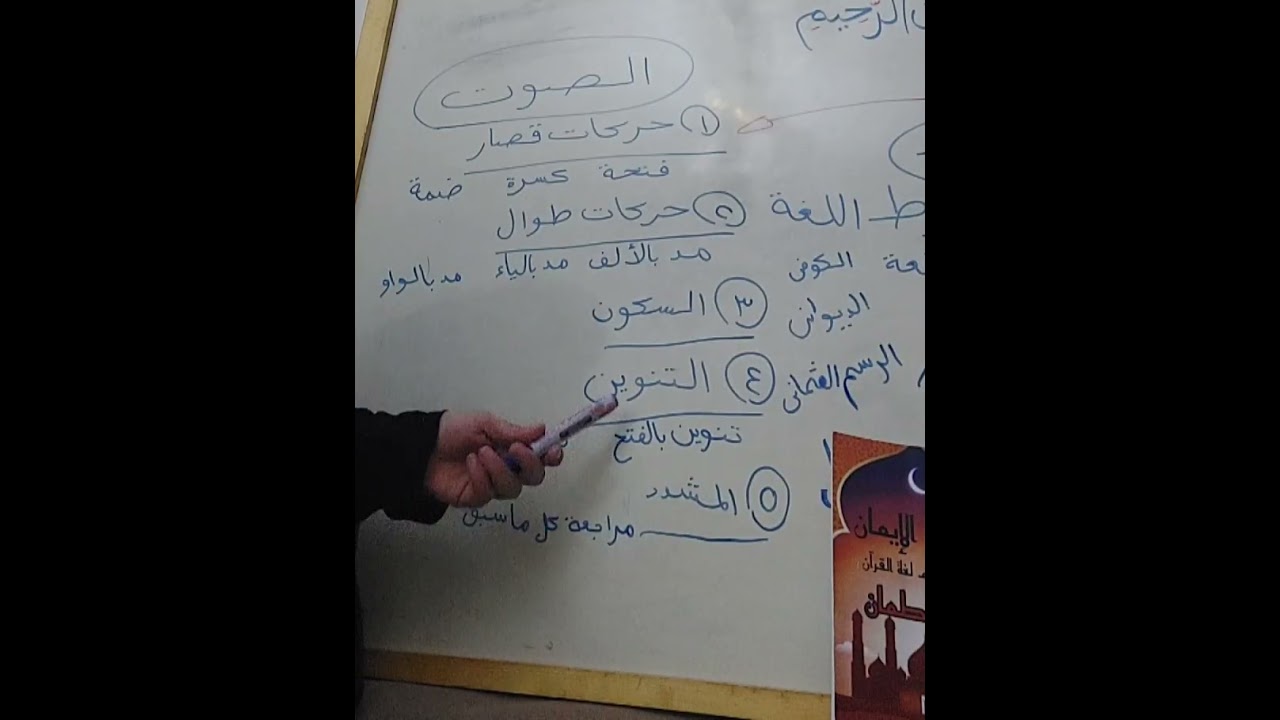 الرَّحِيمِ
الصوت
١ حركات قصار
فتحة كسرة ضمة
٢ حركات طوال
مد بالألف مد بالياء مد بالواو
٣ السكون
٤ التنوين
تنوين بالفتح
٥ المشدد
مراجعة كل ما سبق
اللغة
الكوفى
الديوانى
الرسم العثمانى
الإيمان
لغة القرآن